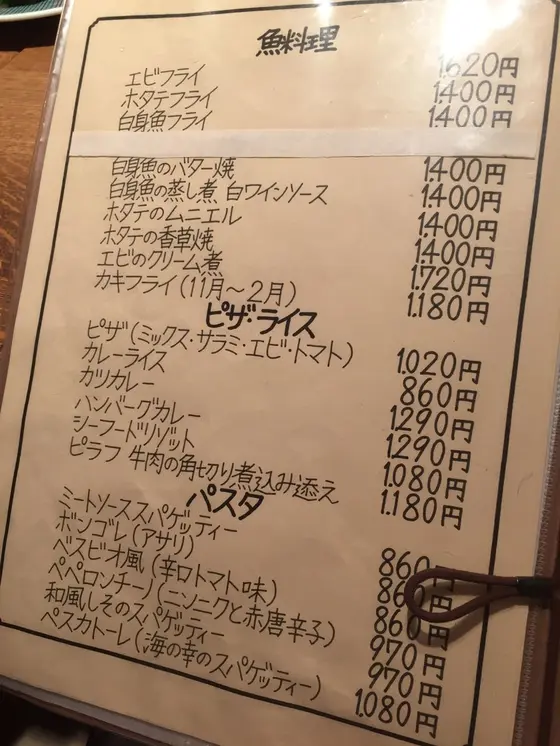 魚料理
エビフライ 1.620円
ホタテフライ 1.400円
白身魚フライ 1.400円
白身魚のバター焼 1.400円
白身魚の蒸し煮 白ワインソース 1.400円
ホタテのムニエル 1.400円
ホタテの香草焼 1.400円
エビのクリーム煮 1.720円
カキフライ(11月～2月) 1.180円
ピザ・ライス
ピザ(ミックス・サラミ・エビ・トマト) 1.020円
カレーライス 860円
カツカレー 1.290円
ハンバーグカレー 1.290円
シーフードリゾット 1.080円
ピラフ 牛肉の角切り煮込み添え 1.180円
パスタ
ミートソーススパゲッティー 860円
ボンゴレ(アサリ) 860円
ベスビオ風(辛口トマト味) 860円
ペペロンチーノ(ニンニクと赤唐辛子) 970円
和風しそのスパゲッティー 970円
ペスカトーレ(海の幸のスパゲッティー) 1.080円